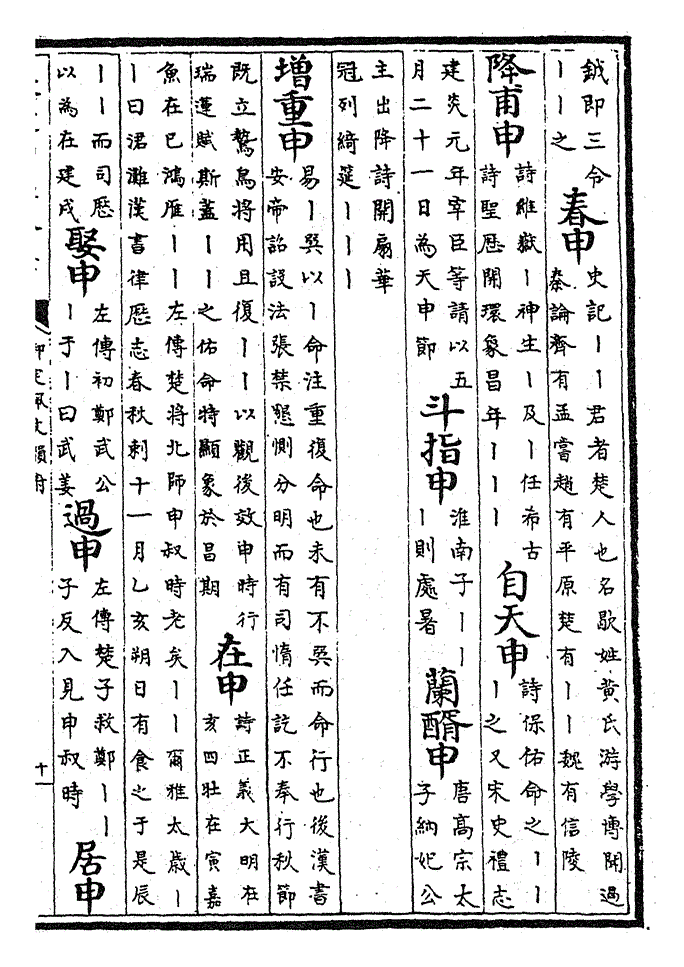 鉞即三令
丨丨之
春申
史記丨丨君者楚人也名歇姓黃氏游學博聞過
秦論齊有孟嘗趙有平原楚有丨丨魏有信陵
降甫申
詩維嶽丨神生丨及丨任希古
詩聖歷開環象昌年丨丨丨
自天申
詩保佑命之丨丨
丨之又宋史禮志
建炎元年宰臣等請以五
月二十一日為天申節
斗指申
淮南子丨丨
丨則處暑
蘭醑申
唐高宗太
子納妃公
主出降詩開扇華
冠列綺筵丨丨丨
增重申
易丨巽以丨命注重復命也未有不巽而命行也後漢書
安帝詔説法張禁懇惻分明而有司惰任訖不奉行秋節
既立鷙鳥將用且復丨丨以觀後效申時行
瑞蓮賦斯蓋丨丨之佑命特顯象於昌期
在申
詩正義大明在
亥四牡在寅嘉
魚在巳鴻雁丨丨左傳楚將北師申叔時老矣丨丨爾雅太歲丨
丨曰涒灘漢書律歷志春秋刺十一月乙亥朔日有食之于是辰
丨丨而司歷
以為在建戌
娶申
左傳初鄭武公
丨于丨曰武姜
過申
左傳楚子救鄭丨丨
子反入見申叔時
居申
御定佩文韻府
十一